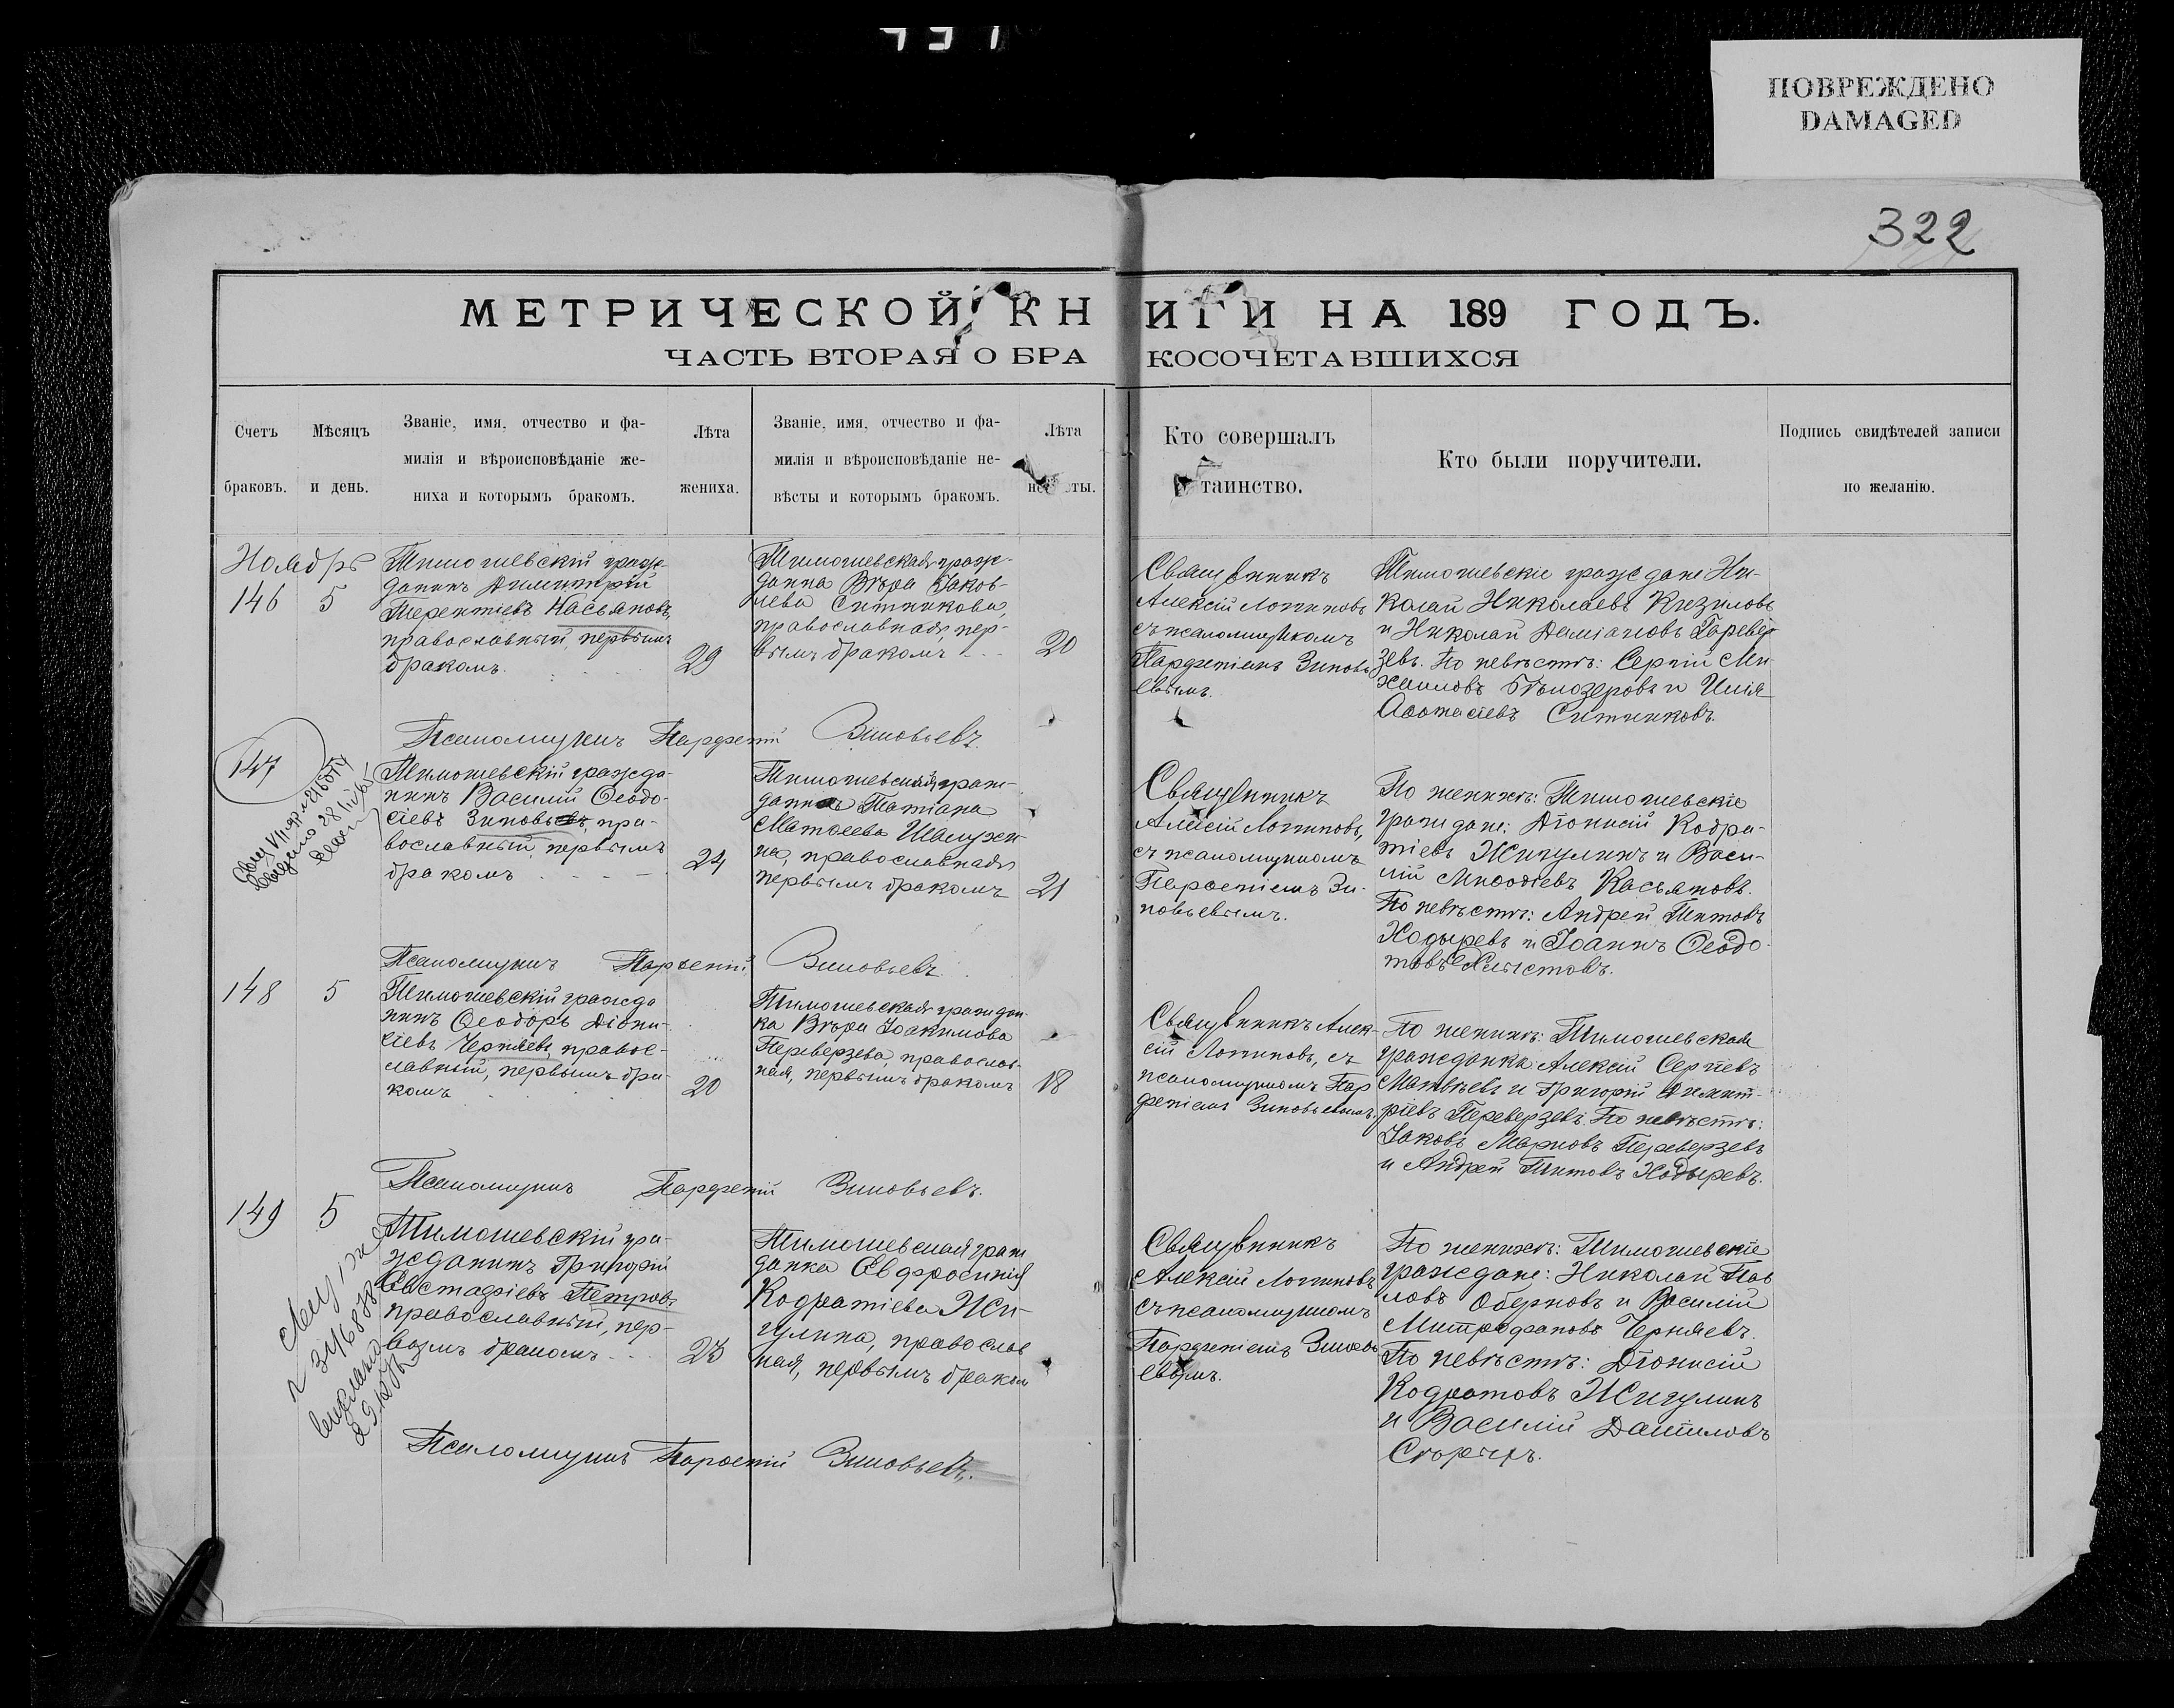 ПОВРЕЖДЕНО
DAMAGED
322
МЕТРИЧЕСКОЙ КНИГИ НА 189 ГОДЪ.
ЧАСТЬ ВТОРАЯ О БРАКОСОЧЕТАВШИХСЯ
Счетъ браковъ.
Мѣсяцъ и день.
Званіе, имя, отчество и фа-
милія и вѣроисповѣданіе же-
ниха и которымъ бракомъ.
Лѣта
жениха.
Званіе, имя, отчество и фа-
милія и вѣроисповѣданіе не-
вѣсты и которымъ бракомъ.
Лѣта
невѣсты.
Кто совершалъ
таинство.
Кто были поручители.
Подпись свидѣтелей записи
по желанію.
Ноябрь
146 5
Тимошевскій граж-
данинъ Димитрій
Терентіевъ Касьяновъ,
православный, первымъ
бракомъ.
29
Тимошевская граж-
данка Вѣра Іаков-
лева Ситникова,
православная, пер-
вымъ бракомъ
20
Священникъ
Алексій Логиновъ
съ псаломщикомъ
Парфеніемъ Зиновь
евымъ.
Тимошевскіе граждане Ни-
колай Николаевъ Кизиловъ
и Николай Даміановъ
зевъ. По невѣстѣ: Сергій Ми-
хаиловъ Бѣлозеровъ и Илія
Аѳонасіевъ Ситниковъ.
Псаломщикъ Парфеній Зиновьевъ.
147
Тимошевскій гражда-
нинъ Василій Ѳеодо-
сіевъ Зиновьевъ, пра-
вославный, первымъ
бракомъ
24
Тимошевская граж-
данка Татіана
Матѳеева
на, православная
первымъ бракомъ
21
Священникъ
Алексій Логиновъ,
съ псаломщикомъ
Парѳеніемъ Зи-
новьевымъ.
По женихѣ: Тимошевскіе
граждане: Діонисій Кодра-
тіевъ Жигулинъ и Васи-
лій Меѳодіевъ Касьяновъ.
По невѣстѣ: Андрей Титовъ
Ходыревъ и Іоаннъ Ѳеодо-
товъ Хлыстовъ.
Псаломщикъ Парѳеній Зиновьевъ.
148 5
Тимошевскій гражда
нинъ Ѳеодоръ Діони-
сіевъ Черняевъ, правос-
лавный, первымъ бра-
комъ
20
Тимошевская граждан-
ка Вѣра Іоакимова
Переверзева, православ-
ная, первымъ бракомъ
18
Священникъ Алек-
сій Логиновъ, съ
псаломщикомъ Пар
феніемъ Зиновьевымъ.
По женихѣ: Тимошевская
гражданка Алексій Сергіевъ
Матвѣевъ и Григорій Димит-
ріевъ Переверзевъ. По невѣстѣ:
Іаковъ Марковъ Переверзевъ
и Андрей Титовъ Ходыревъ.
Псаломщикъ Парфеній Зиновьевъ.
149 5
Тимошевскій гра-
жданинъ Григорій
Евстафіевъ Петровъ
православный, пер-
вымъ бракомъ
23
Тимошевская граж
данка Евфросинія
Кодратіева Жи-
гулина, православ
ная, первымъ браком
Священникъ
Алексій Логиновъ
съ псаломщикомъ
Парфеніемъ Зиновь
евымъ.
По женихѣ: Тимошевскіе
граждане: Николай Пав
ловъ и Василій
Митрофановъ Черняевъ.
По невѣстѣ: Діонисій
Кодратовъ Жигулинъ
и Василій Даніиловъ
Псаломщикъ Парѳеній Зиновьевъ.